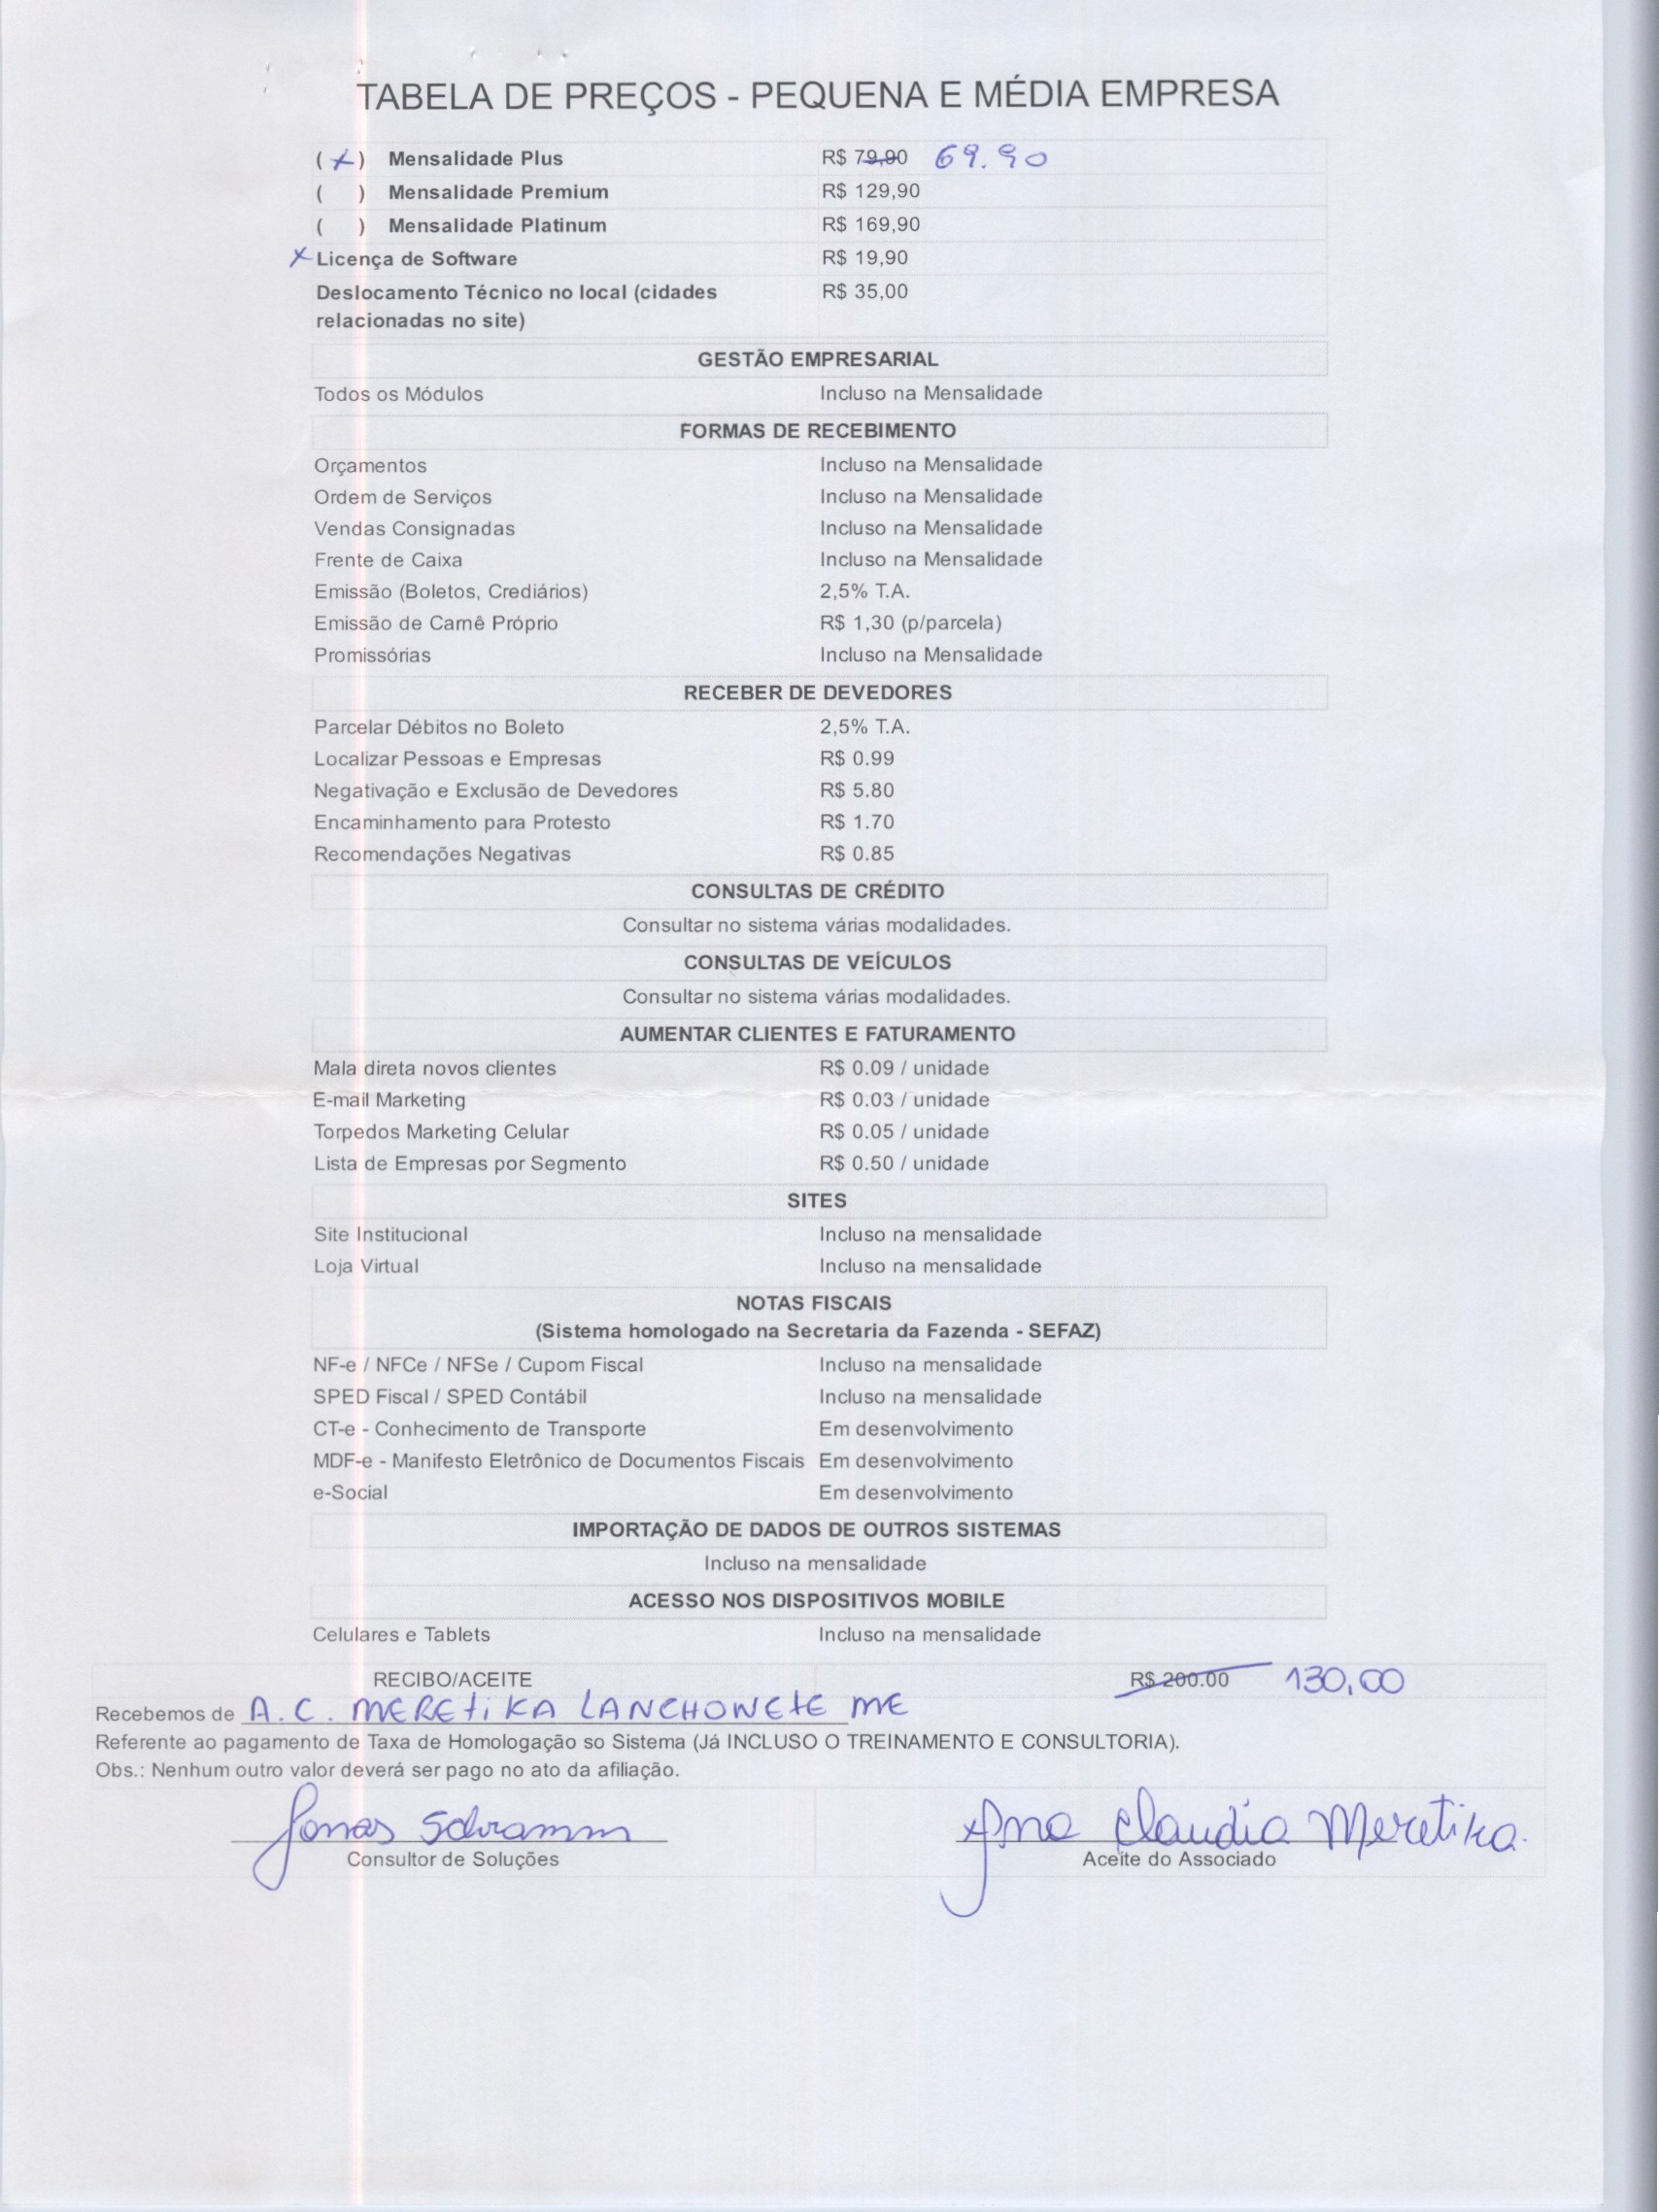 TABELA DE PREÇOS - PEQUENA E MÉDIA EMPRESA
(x) Mensalidade Plus R$ 79,90 69.90
( ) Mensalidade Premium R$ 129,90
( ) Mensalidade Platinum R$ 169,90
x Licença de Software R$ 19,90
Deslocamento Técnico no local (cidades R$ 35,00
relacionadas no site)
GESTÃO EMPRESARIAL
Todos os Módulos Incluso na Mensalidade
FORMAS DE RECEBIMENTO
Orçamentos Incluso na Mensalidade
Ordem de Serviços Incluso na Mensalidade
Vendas Consignadas Incluso na Mensalidade
Frente de Caixa Incluso na Mensalidade
Emissão (Boletos, Crediários) 2,5% T.A.
Emissão de Carnê Próprio R$ 1,30 (p/parcela)
Promissórias Incluso na Mensalidade
RECEBER DE DEVEDORES
Parcelar Débitos no Boleto 2,5% T.A.
Localizar Pessoas e Empresas R$ 0.99
Negativação e Exclusão de Devedores R$ 5.80
Encaminhamento para Protesto R$ 1.70
Recomendações Negativas R$ 0.85
CONSULTAS DE CRÉDITO
Consultar no sistema várias modalidades.
CONSULTAS DE VEÍCULOS
Consultar no sistema várias modalidades.
AUMENTAR CLIENTES E FATURAMENTO
Mala direta novos clientes R$ 0.09 / unidade
E-mail Marketing R$ 0.03 / unidade
Torpedos Marketing Celular R$ 0.05 / unidade
Lista de Empresas por Segmento R$ 0.50 / unidade
SITES
Site Institucional Incluso na mensalidade
Loja Virtual Incluso na mensalidade
NOTAS FISCAIS
(Sistema homologado na Secretaria da Fazenda - SEFAZ)
NF-e / NFCe / NFSe / Cupom Fiscal Incluso na mensalidade
SPED Fiscal / SPED Contábil Incluso na mensalidade
CT-e - Conhecimento de Transporte Em desenvolvimento
MDF-e - Manifesto Eletrônico de Documentos Fiscais Em desenvolvimento
e-Social Em desenvolvimento
IMPORTAÇÃO DE DADOS DE OUTROS SISTEMAS
Incluso na mensalidade
ACESSO NOS DISPOSITIVOS MOBILE
Celulares e Tablets Incluso na mensalidade
RECIBO/ACEITE R$ 200.00 130,00
Recebemos de A.C. MERETIKA LANCHONETE ME
Referente ao pagamento de Taxa de Homologação so Sistema (Já INCLUSO O TREINAMENTO E CONSULTORIA).
Obs.: Nenhum outro valor deverá ser pago no ato da afiliação.
Jonas Schramm Ana Claudia Meretika.
Consultor de Soluções Aceite do Associado